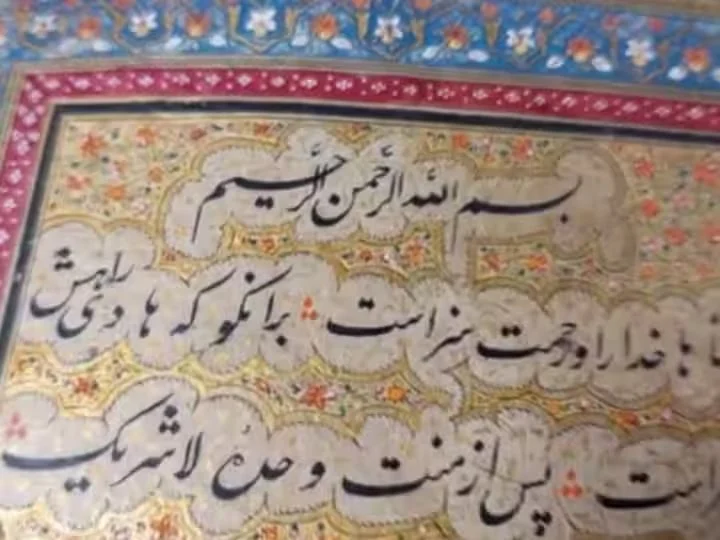 بسم الله الرَّحمن الرَّحیم
ها خدا را و رحمت سزاست برانکو که هادی راهش
است پس از منت وحده لا شریک